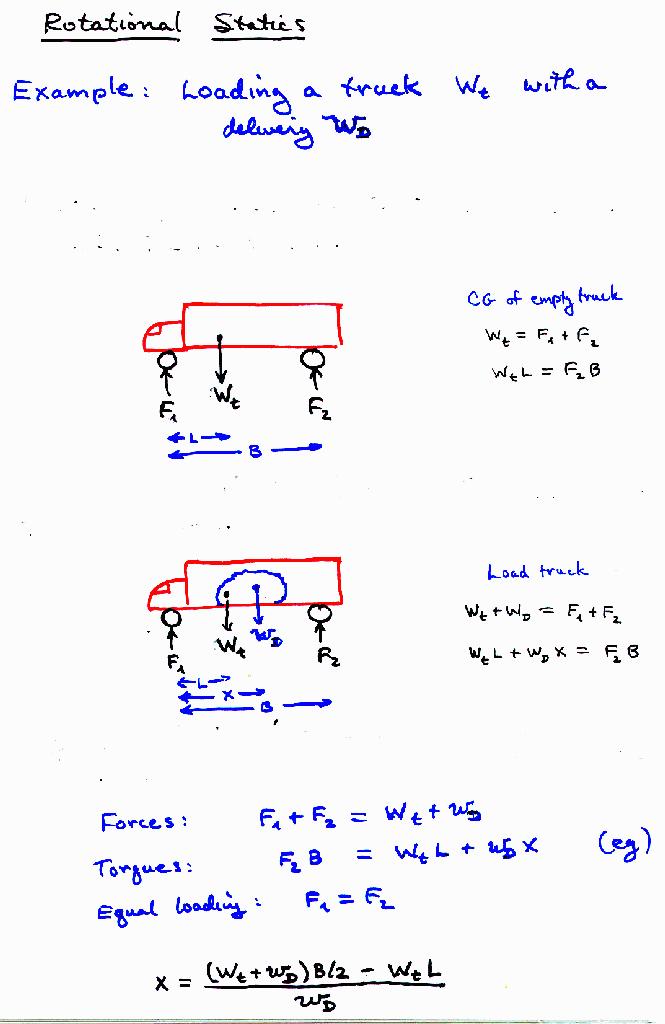 Rotational Statics
Example: Loading a truck Wt with a
delivery WD
CG of empty truck
Wt = F1 + F2
WtL = F2B
Wt
F1
F2
L
B
Load truck
Wt + WD = F1 + F2
WtL + WDX = F2B
Wt
WD
F1
F2
L
X
B
Forces: F1 + F2 = Wt + WD
Torques: F2B = WtL + WDX (eg)
Equal loading: F1 = F2
X = (Wt + WD)B/2 - WtL
WD